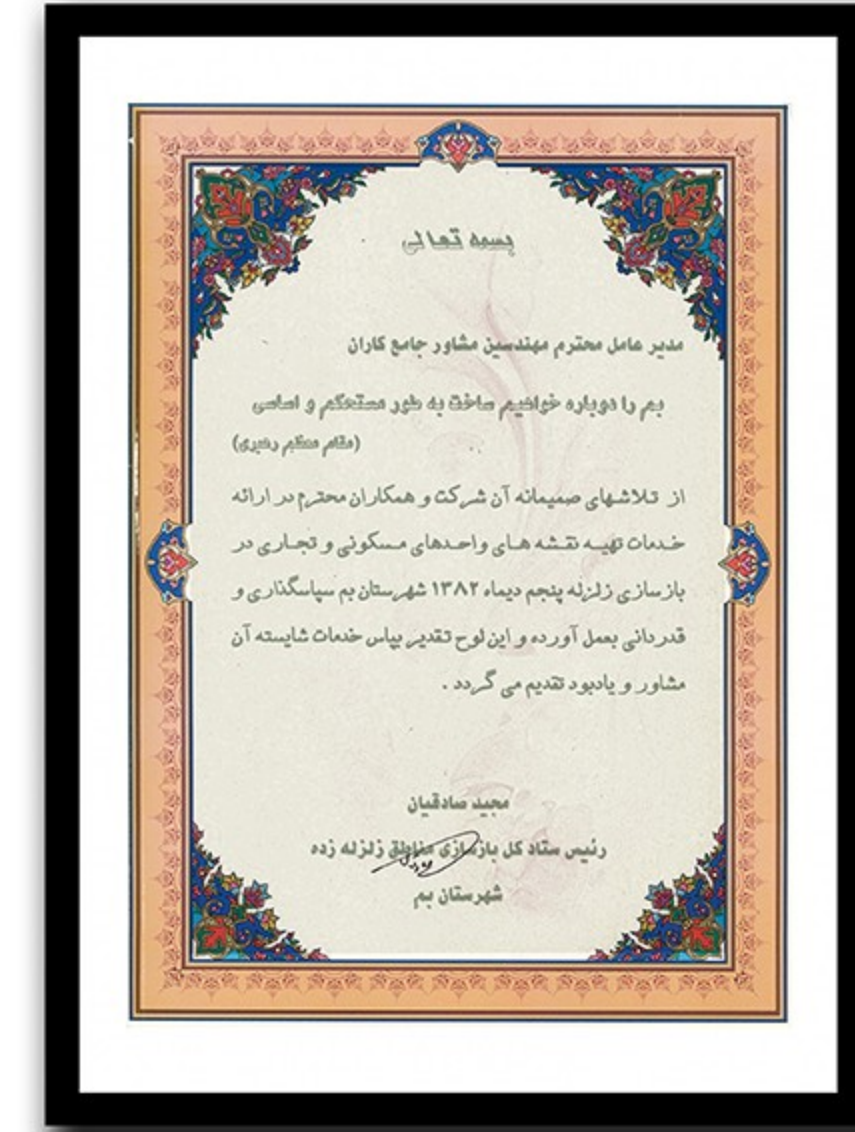 بسمه تعالی
مدیر عامل محترم مهندسین مشاور جامع کاران
بم را دوباره خواهیم ساخت به طور مستحکم و اساسی
(مقام معظم رهبری)
از تلاشهای صمیمانه آن شرکت و همکاران محترم در ارائه
خدمات تهیه نقشه های واحدهای مسکونی و تجاری در
بازسازی زلزله پنجم دیماه ۱۳۸۲ شهرستان بم سپاسگذاری و
قدردانی بعمل آورده و این لوح تقدیر بپاس خدمات شایسته آن
مشاور و یادبود تقدیم می گردد .
مجید صادقیان
رئیس ستاد کل بازسازی مناطق زلزله زده
شهرستان بم